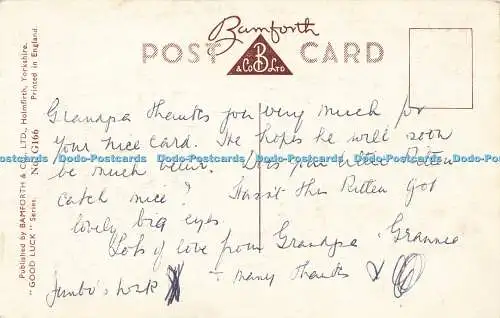 Bamforth
POST CARD
B
& Co LTD
Published by BAMFORTH & CO., LTD., Holmfirth, Yorkshire.
"GOOD LUCK" Series. No. G166 Printed in England.
Grandpa thanks you very much for
your nice card. He hopes he will soon
be much better. Does your little Kitten
catch mice? Hasn't this Kitten got
lovely big eyes.
Lots of love from Grandpa & Grannie
& many thanks &
Jumbo's
Dodo-Postcards Dodo-Postcards Dodo-Postcards Dodo-Postcards Dodo-Postcards